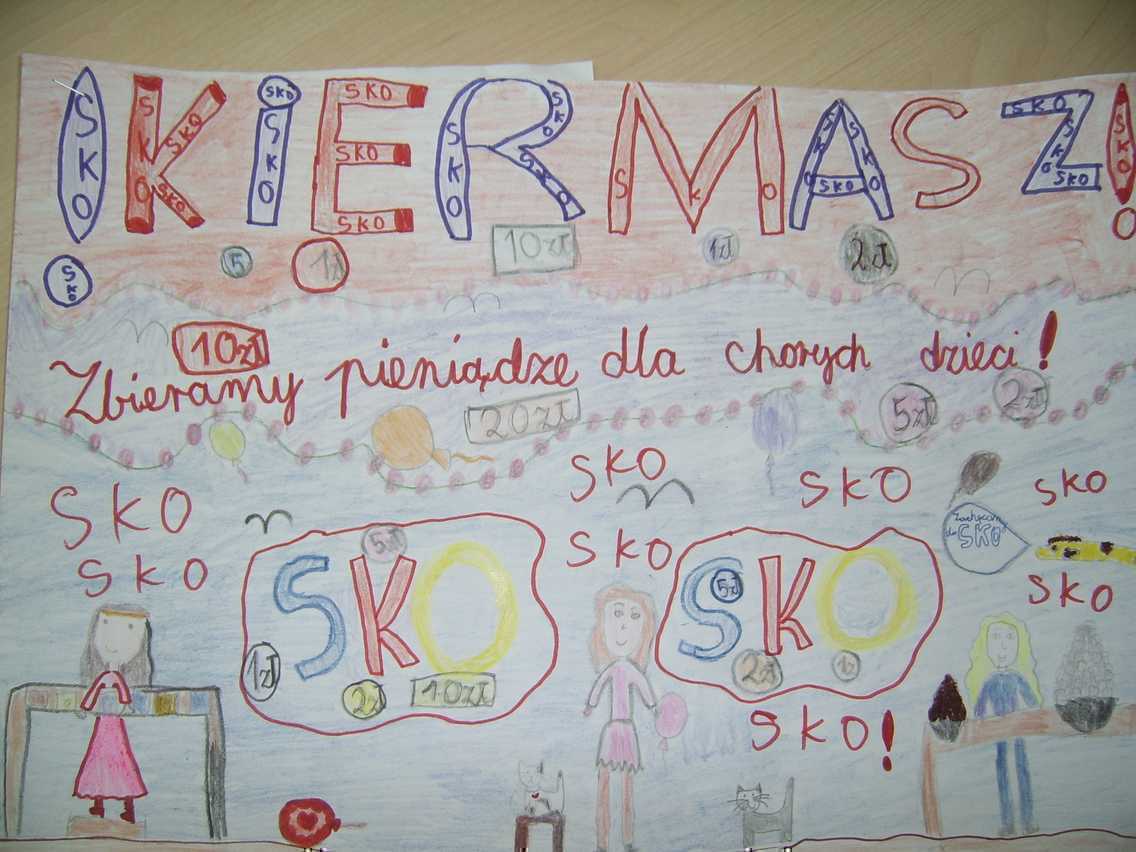 !KiERMASZ!
SKO SKO SKO SKO SKO SKO SKO SKO SKO SKO SKO SKO SKO SKO SKO SKO SKO SKO SKO SKO
SKO
5 1zł 10zł 1zł 2zł
10zł
Zbieramy pieniądze dla chorych dzieci!
20zł 5zł 2zł
SKO
SKO
SKO
SKO
SKO
SKO
5zł
SKO
1zł 2zł 10zł
5zł
SKO
2zł 1zł
Zachęcamy
do SKO
SKO
SKO
SKO!